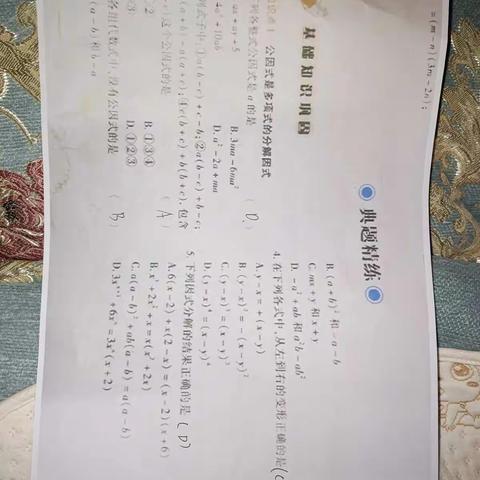 =(m-n)(3m-2n);
典题精练
基础知识巩固
知识点1 公因式是多项式的分解因式
列各整式公因式是 a 的是 (D)
ax+ay+5 B. 3ma-6ma²
4a²+10ab D. a²-2a+ma
列式子中:①a(b-c)+c-b;②a(b-c)+b-c;
(a+b)-a(a+b);④c(b+c)+b(b+c),包含
这个公因式的是 (A)
②③ B. ①③④
D. ①②③
各组代数式中,没有公因式的是 (B)
(a-b)和 b-a
B. (a+b)² 和 -a-b
C. mx+y 和 x+y
D. -a²+ab 和 a²b-ab²
4. 在下列各式中,从左到右的变形正确的是(C
A. y-x=+(x-y)
B. (y-x)²=-(x-y)²
C. (y-x)³=(x-y)³
D. (y-x)⁴=(x-y)⁴
5. 下列因式分解的结果正确的是(D)
A. 6(x-2)+x(2-x)=(x-2)(x+6)
B. x³+2x²+x=x(x²+2x)
C. a(a-b)²+ab(a-b)=a(a-b)
D. 3xⁿ⁺¹+6xⁿ=3xⁿ(x+2)